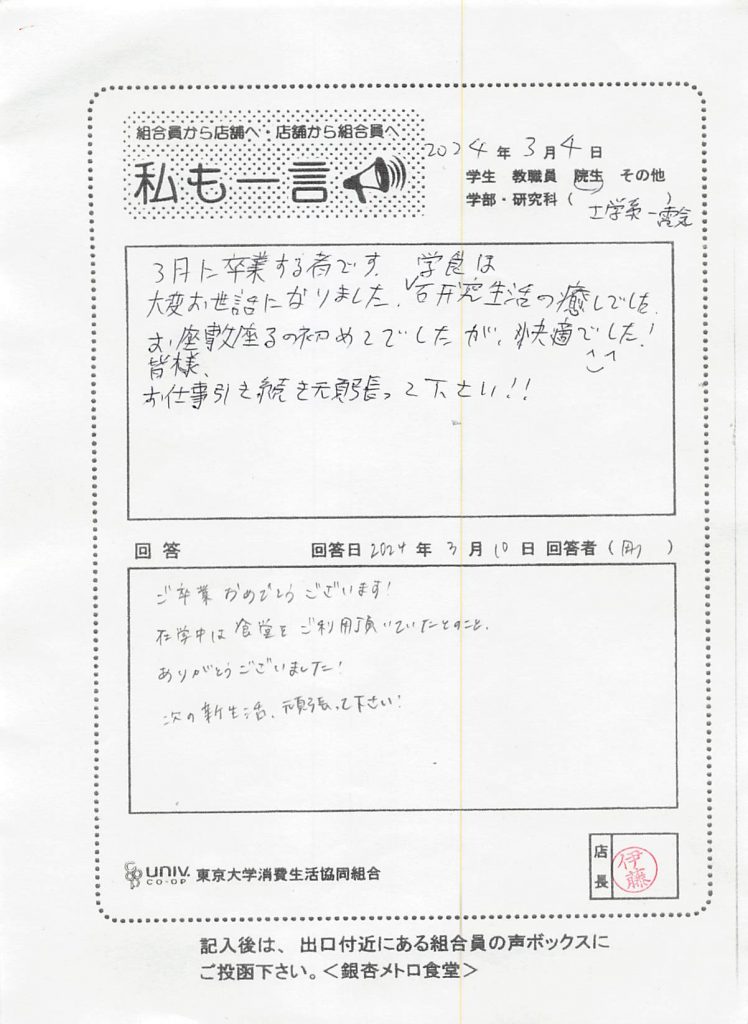 組合員から店舗へ・店舗から組合員へ
私も一言
2024年3月4日
学生 教職員 院生 その他
学部・研究科( 工学系-電気 )
3月に卒業する者です。学食は
大変お世話になりました。石研究生活の癒しでした。
お座敷座るの初めてでしたが、快適でした!
皆様、
お仕事引き続き頑張って下さい!!
回答 回答日2024年3月10日 回答者( )
ご卒業おめでとうございます!
在学中は食堂をご利用頂いていたとのこと、
ありがとうございました!
次の新生活、頑張って下さい!
UNIV. CO-OP 東京大学消費生活協同組合
店長 伊藤
記入後は、出口付近にある組合員の声ボックスに
ご投函下さい。<銀杏メトロ食堂>